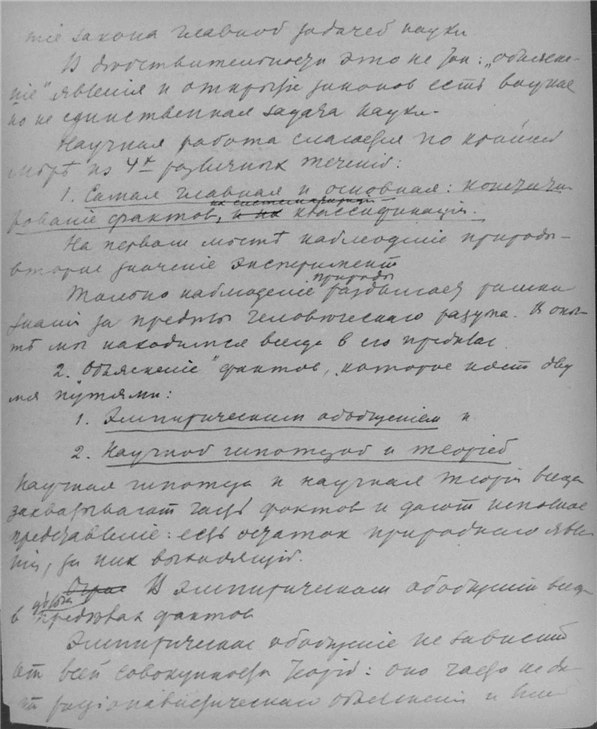 тіе закона главной задачей науки.
В действительности это не так: „объясне-
ніе" явленія и открытіе законов есть важная
но не единственная задача науки.
Научная работа слагается по крайней
мѣрѣ из 4х различных теченій:
1. Самая главная и основная:
систематизація
рованіе фактов, и их классификація.
На первом мѣстѣ наблюденіе природы –
второе значеніе эксперимент
природы
Только наблюденіе раздвигает рамки
знанія за предѣлы человѣческаго разума. В опы-
тѣ мы находимся всегда в его предѣлах.
2. „Объясненіе" фактов, которое идет дву
мя путями:
1. Эмпирическим обобщеніем и
2. Научной гипотезой и теоріей
Научная гипотеза и научная теорія всегда
захватывают часть фактов и дают неполное
представленіе: есть остаток природнаго явле
нія, за них выходящій.
В эмпирическом обобщеніи всегда
в предѣлах фактов
Эмпирическое обобщеніе не зависит
от всей совокупности теорій: оно часто не
раціоналистическаго объясненія и